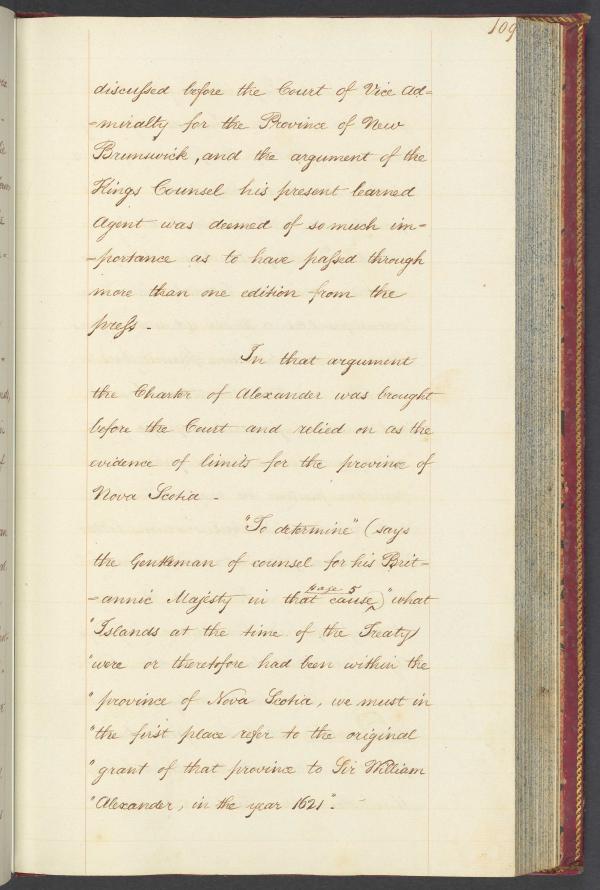 109
discussed before the Court of Vice Ad=
=miralty for the Province of New
Brunswick, and the argument of the
Kings Counsel his present learned
Agent was deemed of so much im=
=portance as to have passed through
more than one edition from the
press -
In that argument
the Charter of Alexander was brought
before the Court and relied on as the
evidence of limits for the province of
Nova Scotia -
"To determine" (says
the Gentleman of counsel for his Brit=
page 5
=annic Majesty in that cause) "what
"Islands at the time of the Treaty
"were or theretofore had been within the
"province of Nova Scotia, we must in
"the first place refer to the original
"grant of that province to Sir William
"Alexander, in the year 1621".